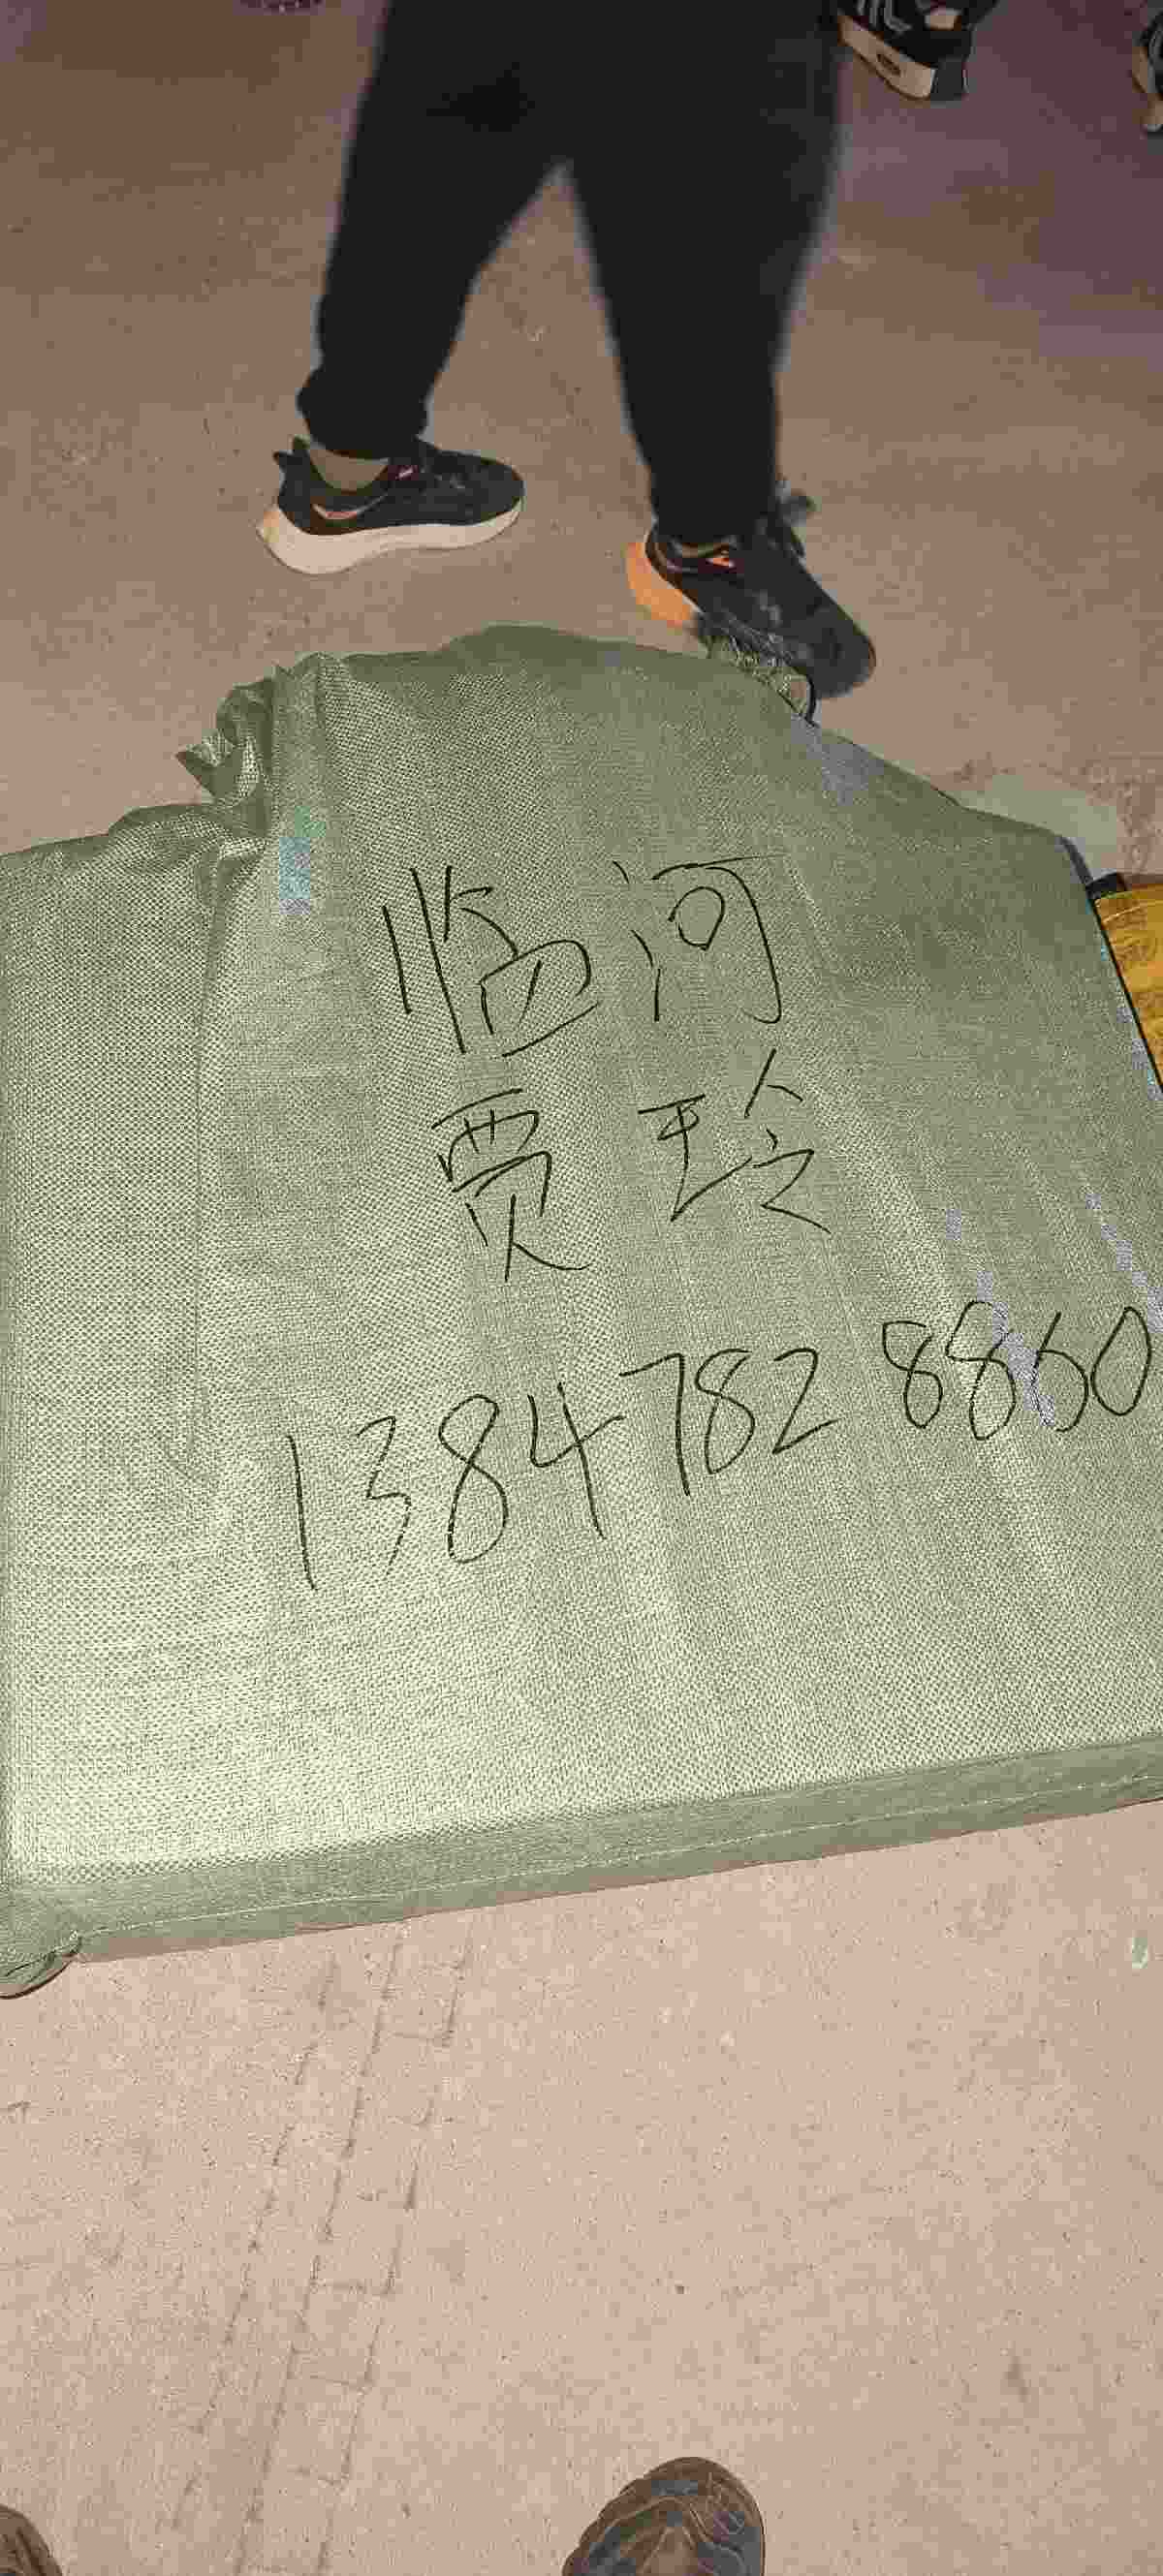 临河
贾玲
1384782 8860